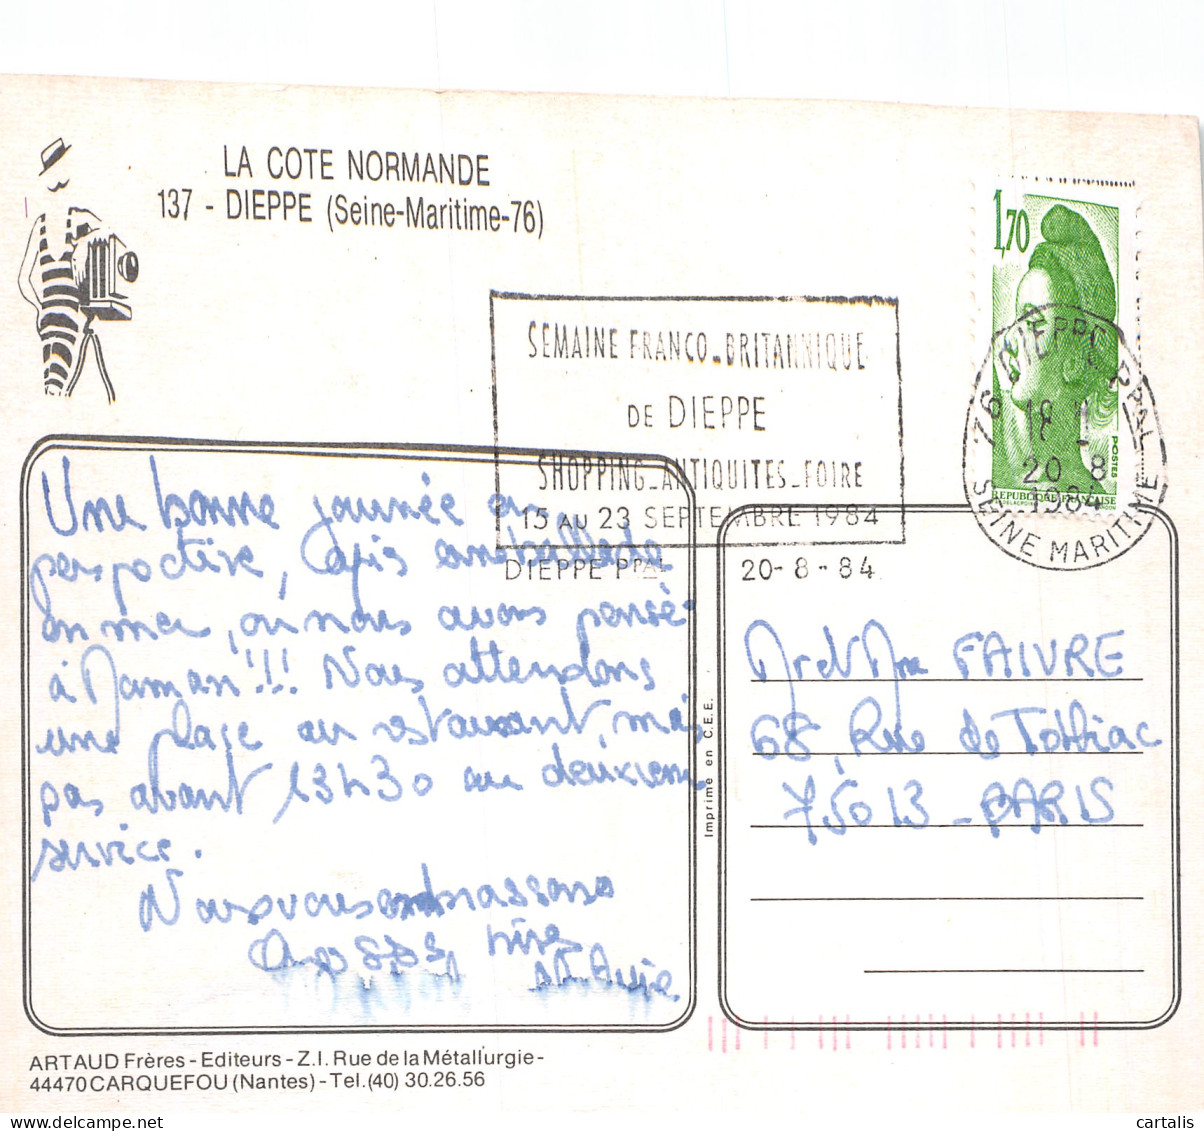 LA COTE NORMANDE
137 - DIEPPE (Seine-Maritime-76)
1,70
POSTES
REPUBLIQUE FRANÇAISE
76 DIEPPE PPAL
20 - 8
1984
SEINE MARITIME
SEMAINE FRANCO-BRITANNIQUE
DE DIEPPE
SHOPPING-ANTIQUITES-FOIRE
15 AU 23 SEPTEMBRE 1984
DIEPPE PPAL 20-8-84
Une bonne journée en
perspective, après une ballade
en mer, où nous avons pensé
à Maman!!! Nous attendons
une place au restaurant, mais
pas avant 13h30 au deuxième
service.
Nous vous embrassons
Mr et Mme FAIVRE
68, Rue de Tolbiac
75013 - PARIS
Imprimé en C.E.E.
ARTAUD Frères - Editeurs - Z.I. Rue de la Métallurgie -
44470 CARQUEFOU (Nantes) - Tel. (40) 30.26.56
cartalis